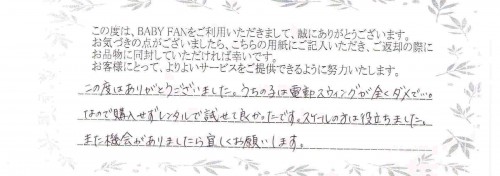 この度は、BABY FANをご利用いただきまして、誠にありがとうございます。
お気づきの点がございましたら、こちらの用紙にご記入いただき、ご返却の際に
お品物に同封していただければ幸いです。
お客様にとって、よりよいサービスをご提供できるように努力いたします。
この度はありがとうございました。うちの子は電動スウィングが全くダメでした。
なので購入せずレンタルで試せて良かったです。スケールの方は役立ちました。
また機会がありましたら宜しくお願いします。